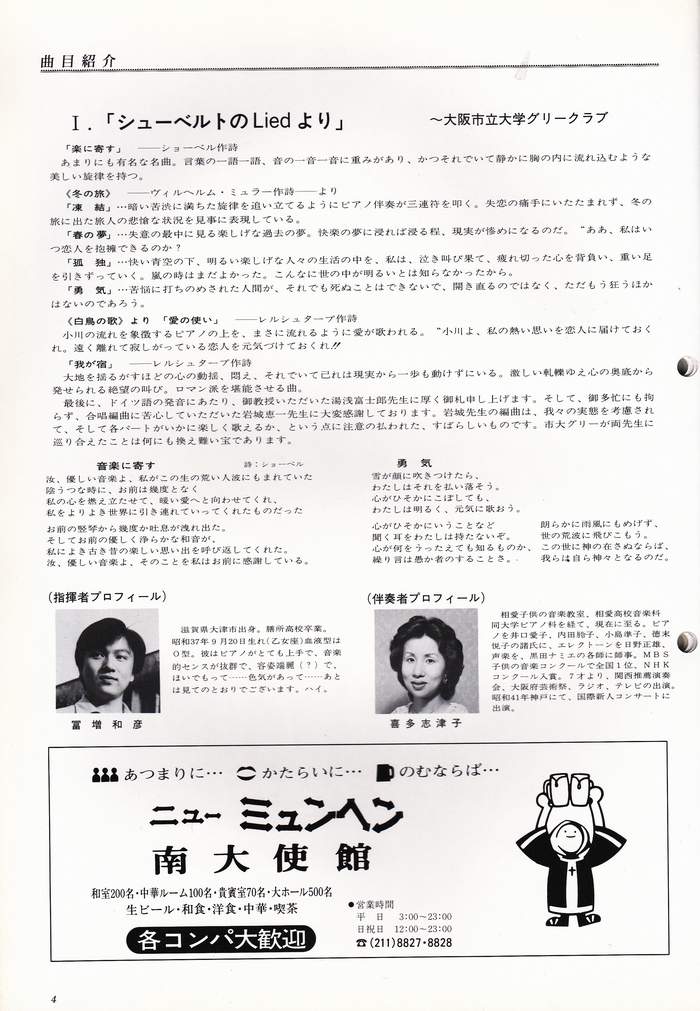 曲目紹介
Ⅰ.「シューベルトのLiedより」 ～大阪市立大学グリークラブ
「楽に寄す」 ――ショーベル作詩
あまりにも有名な名曲。言葉の一語一語、音の一音一音に重みがあり、かつそれでいて静かに胸の内に流れ込むような
美しい旋律を持つ。
《冬の旅》 ――ヴィルヘルム・ミュラー作詩――より
「凍 結」…暗い苦渋に満ちた旋律を追い立てるようにピアノ伴奏が三連符を叩く。失恋の痛手にいたたまれず、冬の
旅に出た旅人の悲愴な状況を見事に表現している。
「春の夢」…失意の最中に見る楽しげな過去の夢。快楽の夢に浸れば浸る程、現実が惨めになるのだ。“ああ、私はい
つ恋人を抱擁できるのか？
「孤 独」…快い青空の下、明るい楽しげな人々の生活の中を、私は、泣き叫び果て、疲れ切った心を背負い、重い足
を引きずっていく。嵐の時はまだよかった。こんなに世の中が明るいとは知らなかったから。
「勇 気」…苦悩に打ちのめされた人間が、それでも死ぬことはできないで、開き直るのではなく、ただもう狂うほか
はないのであろう。
《白鳥の歌》より 「愛の使い」 ――レルシュタープ作詩
小川の流れを象徴するピアノの上を、まさに流れるように愛が歌われる。“小川よ、私の熱い思いを恋人に届けておく
れ。遠く離れて寂しがっている恋人を元気づけておくれ!!
「我が宿」 ――レルシュタープ作詩
大地を揺るがすほどの心の動揺、悶え、それでいて己れは現実から一歩も動けずにいる。激しい軋轢ゆえ心の奥底から
発せられる絶望の叫び。ロマン派を堪能させる曲。
最後に、ドイツ語の発音にあたり、御教授いただいた湯浅富士郎先生に厚く御礼申し上げます。そして、御多忙にも拘
らず、合唱編曲に苦心していただいた岩城恵一先生に大変感謝しております。岩城先生の編曲は、我々の実態を考慮され
て、そして各パートがいかに楽しく歌えるか、という点に注意の払われた、すばらしいものです。市大グリーが両先生に
巡り合えたことは何にも換え難い宝であります。
音楽に寄す 詩：ショーベル
汝、優しい音楽よ、私がこの生の荒い人波にもまれていた
陰うつな時に、お前は幾度となく
私の心を燃え立たせて、暖い愛へと向わせてくれ、
私をよりよき世界に引き連れていってくれたものだった
お前の竪琴から幾度か吐息が洩れ出た。
そしてお前の優しく浄らかな和音が、
私によき古き昔の楽しい思い出を呼び返してくれた。
汝、優しい音楽よ、そのことを私はお前に感謝している。
勇 気
雪が顔に吹きつけたら、
わたしはそれを払い落そう。
心がひそかにこぼしても、
わたしは明るく、元気に歌おう。
心がひそかにいうことなど
聞く耳をわたしは持たないぞ。
心が何をうったえても知るものか、
繰り言は愚か者のすることさ。
朗らかに雨風にもめげず、
世の荒波に飛びこもう。
この世に神の在さぬならば、
我らは自ら神々となるのだ。
(指揮者プロフィール)
滋賀県大津市出身。膳所高校卒業。
昭和37年9月20日生れ(乙女座)血液型は
O型。彼はピアノがとても上手で、音楽
的センスが抜群で、容姿端麗(？)で、
ほいでもって……色気があって……あと
は見てのとおりでございます。ハイ。
冨増和彦
(伴奏者プロフィール)
相愛子供の音楽教室、相愛高校音楽科
同大学ピアノ科を経て、現在に至る。ピア
ノを井口愛子、内田胎子、小島準子、徳末
悦子の諸氏に、エレクトーンを日野正雄、
声楽を、黒田ナミエの各師に師事。MBS
子供の音楽コンクールで全国1位、NHK
コンクール入賞。7才より、関西推薦演奏
会、大阪府芸術祭、ラジオ、テレビの出演。
昭和41年神戸にて、国際新人コンサートに
出演。
喜多志津子
あつまりに… かたらいに… のむならば…
ニューミュンヘン
南大使館
和室200名・中華ルーム100名・貴賓室70名・大ホール500名
生ビール・和食・洋食・中華・喫茶
各コンパ大歓迎
●営業時間
平 日 3:00～23:00
日祝日 12:00～23:00
☎(211)8827・8828
4